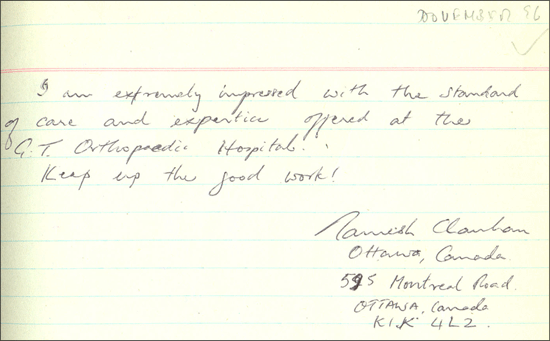 NOVEMBER 96
I am extremely impressed with the standard
of care and expertice offered at the
G.T. Orthopaedic Hospital.
Keep up the good work!
Ramesh Chauhan
Ottawa, Canada
595 Montreal Road.
OTTAWA, Canada
K1K 4L2.